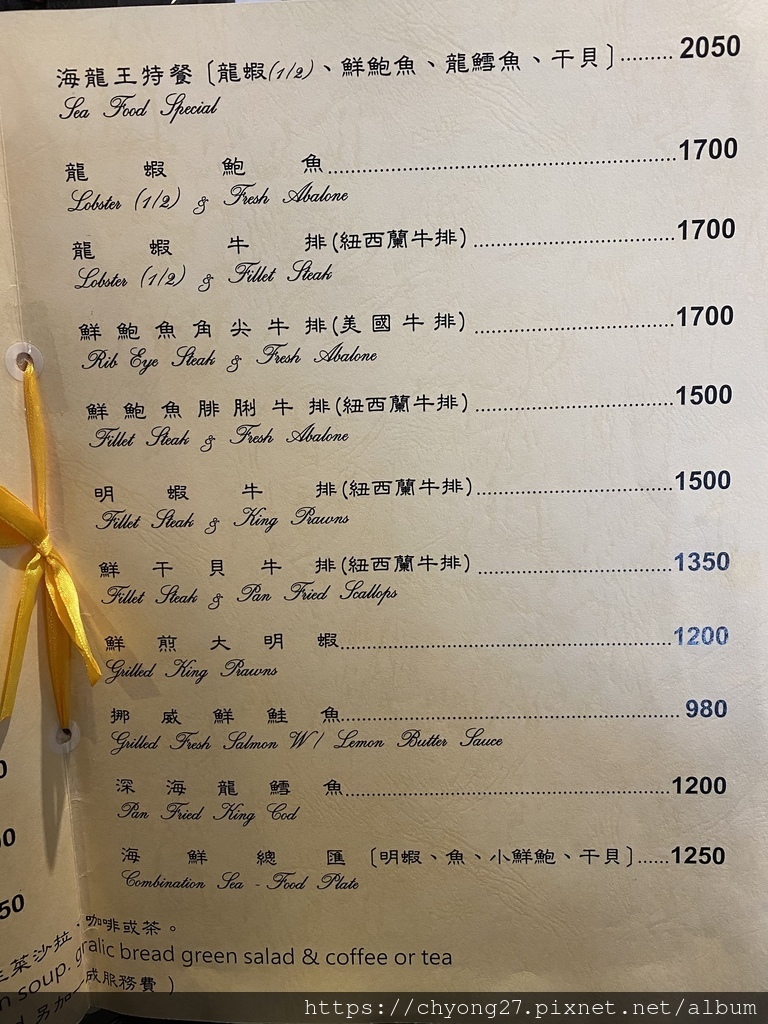 海龍王特餐〔龍蝦(1/2)、鮮鮑魚、龍鱈魚、干貝〕......... 2050
Sea Food Special
龍蝦鮑魚......... 1700
Lobster (1/2) & Fresh Abalone
龍蝦牛排(紐西蘭牛排)......... 1700
Lobster (1/2) & Fillet Steak
鮮鮑魚角尖牛排(美國牛排)......... 1700
Rib Eye Steak & Fresh Abalone
鮮鮑魚腓脷牛排(紐西蘭牛排)......... 1500
Fillet Steak & Fresh Abalone
明蝦牛排(紐西蘭牛排)......... 1500
Fillet Steak & King Prawns
鮮干貝牛排(紐西蘭牛排)......... 1350
Fillet Steak & Pan Fried Scallops
鮮煎大明蝦......... 1200
Grilled King Prawns
挪威鮮鮭魚......... 980
Grilled Fresh Salmon W/ Lemon Butter Sauce
深海龍鱈魚......... 1200
Pan Fried King Cod
海鮮總匯〔明蝦、魚、小鮮鮑、干貝〕...... 1250
Combination Sea - Food Plate
菜沙拉，咖啡或茶。
soup. gralic bread green salad & coffee or tea
另加一成服務費 )
50
https://chyong27.pixnet.net/album